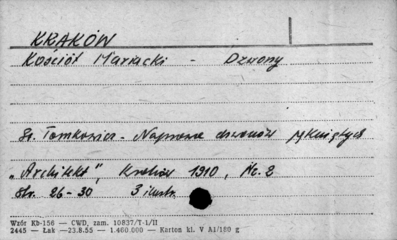 KRAKÓW
Kościół Mariacki - Dzwony
St. Tomkowicz - Naprawa dzwonów pękniętych
„Architekt", Kraków 1910, Nr. 2
Str. 26-30 3 ilustr.
Wzór Kb-156 — CWD, zam. 10837/T-1/II
2445 — Łak —23.8.55 — 1.400.000 — Karton kl. V A1/180 g